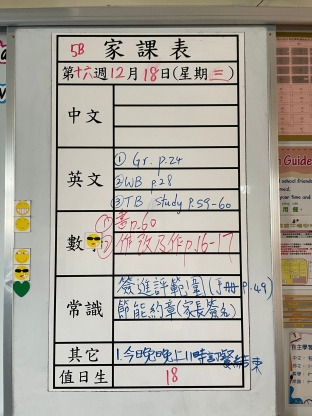 5B 家課表
第十六週12月18日(星期三)
中文
英文
① Gr. p.24
② WB p.28
③ TB study p.59-60
數
① 書p.60
② 作改及作p.16-17
常識
簽進評範圍(手冊p.49)
節能約章(家長簽名)
其它
1.今晚晚上11時 結束
值日生
18
Guide